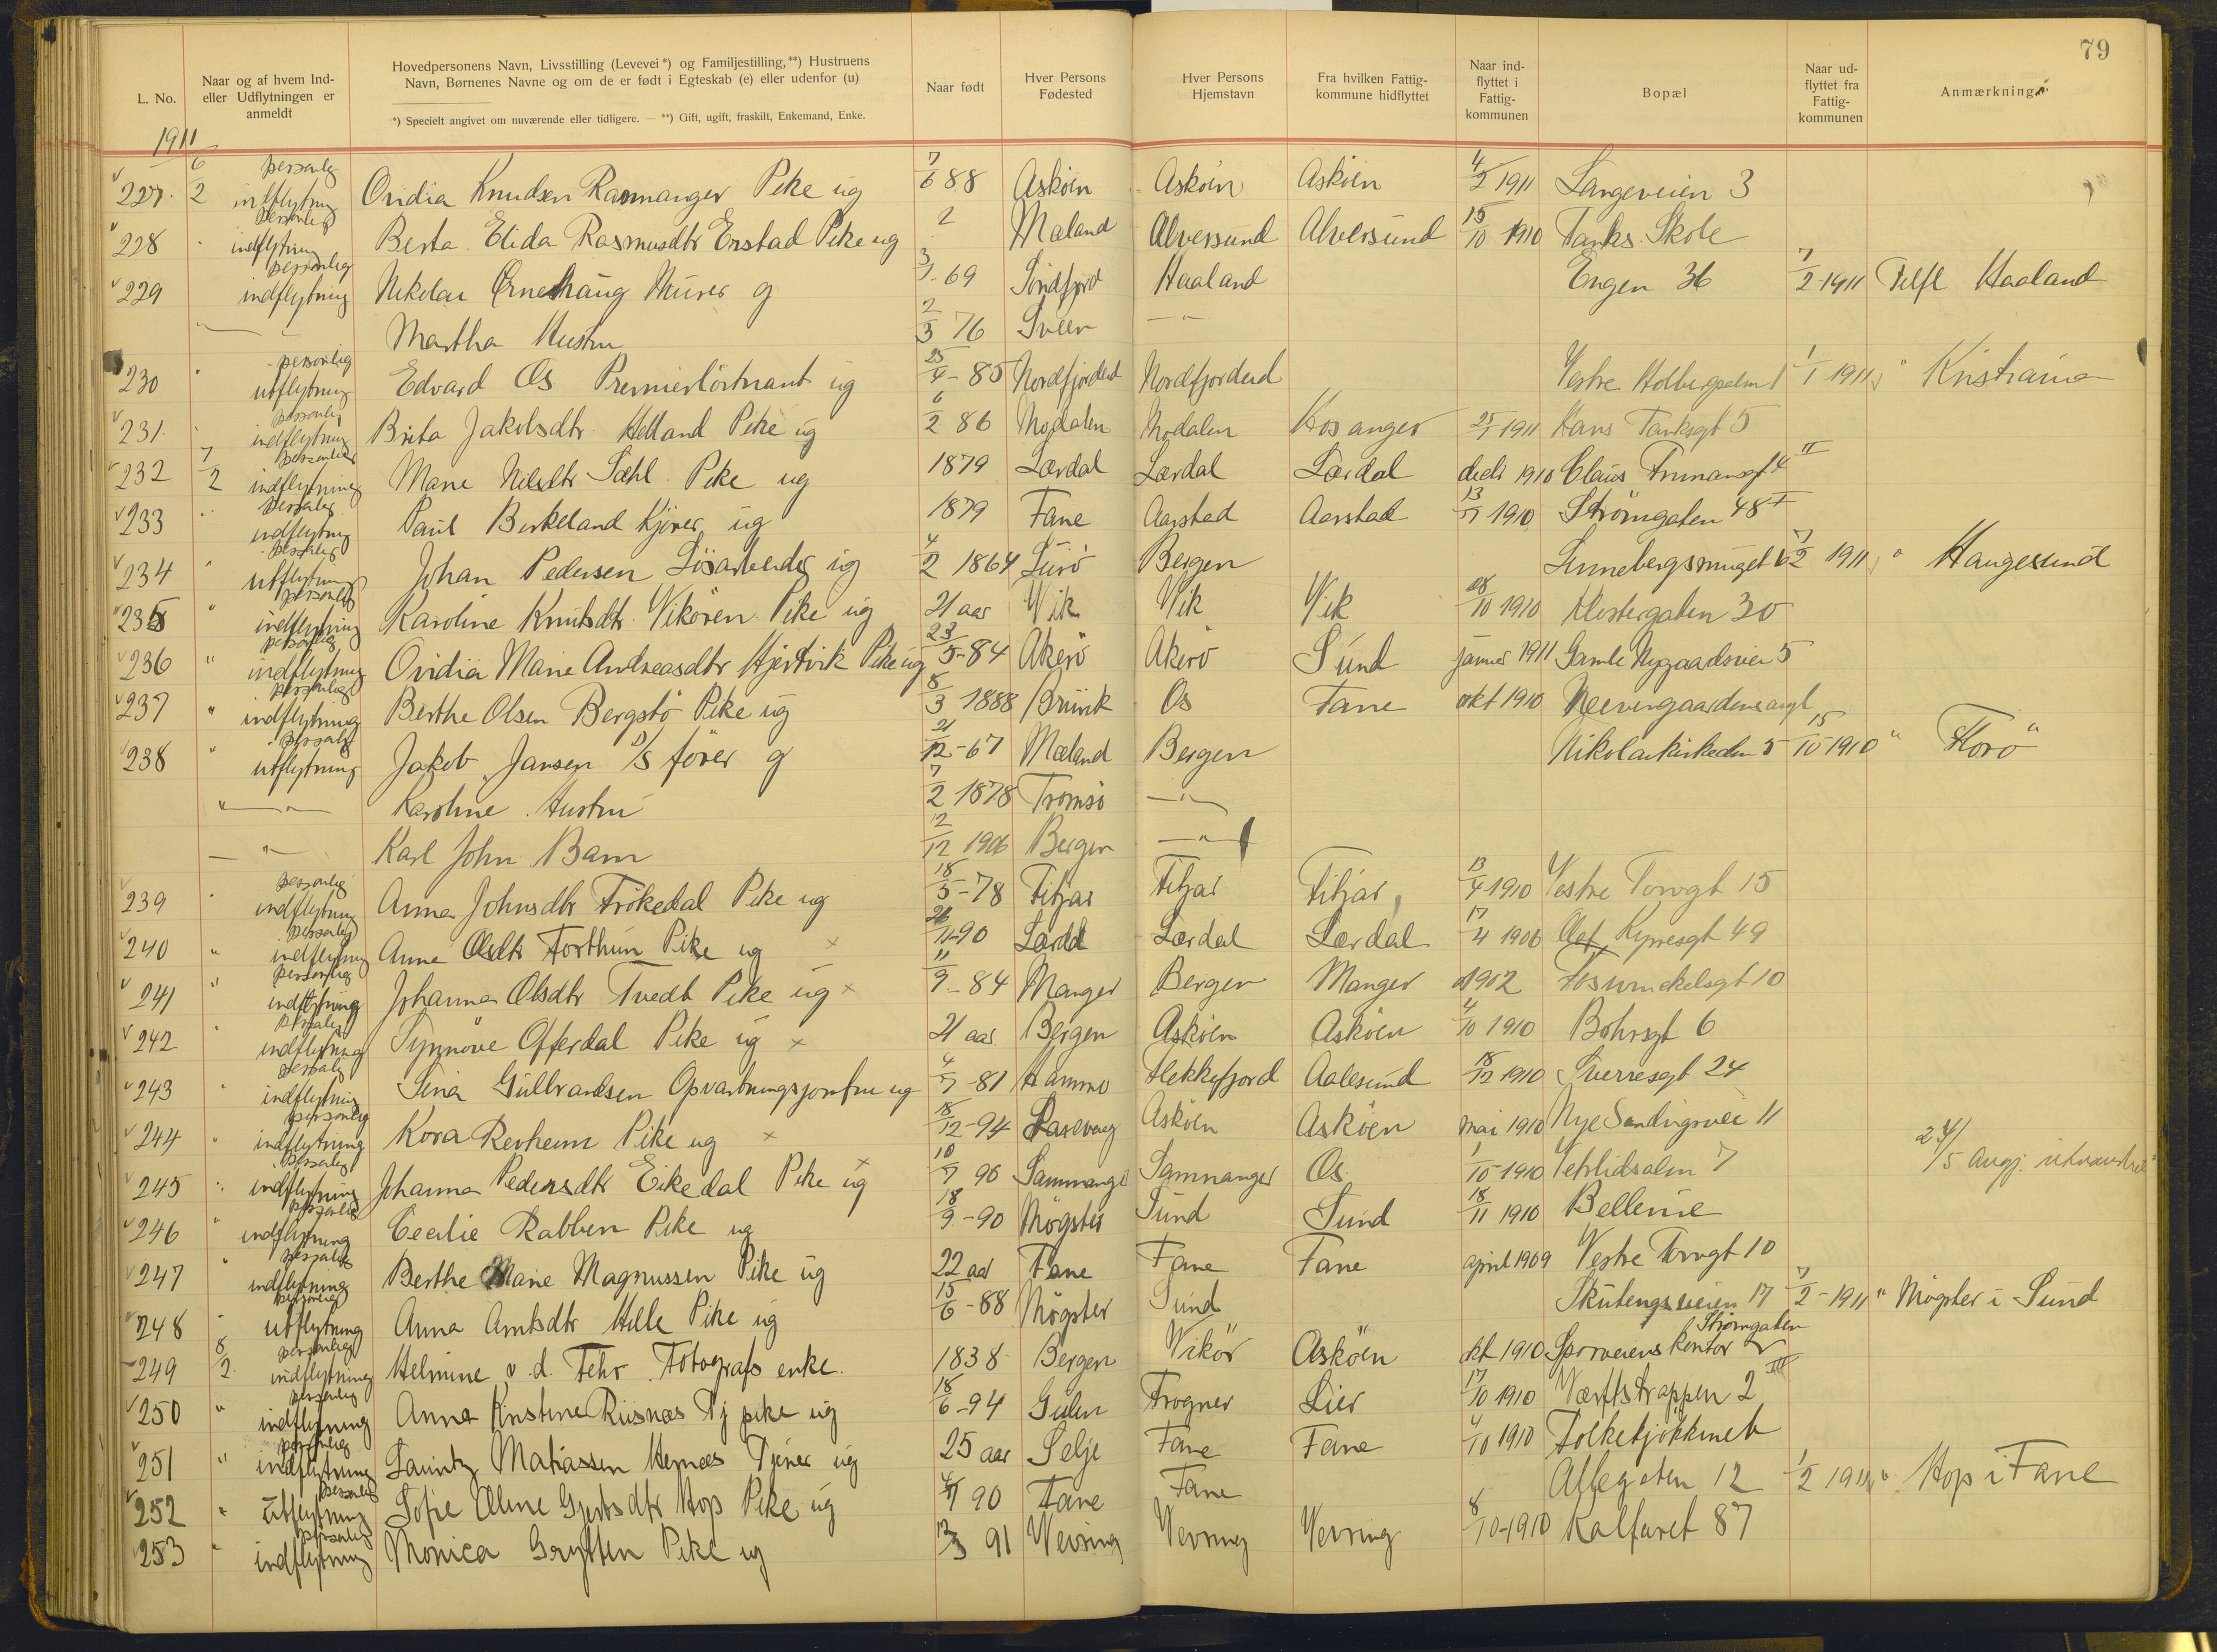 79
L. No.
Naar og af hvem Ind-
eller Udflytningen er
anmeldt
Hovedpersonens Navn, Livsstilling (Levevei*) og Familjestilling,**) Hustruens
Navn, Børnenes Navne og om de er født i Egteskab (e) eller udenfor (u)
*) Specielt angivet om nuværende eller tidligere. — **) Gift, ugift, fraskilt, Enkemand, Enke.
Naar født
Hver Persons
Fødested
Hver Persons
Hjemstavn
Fra hvilken Fattig-
kommune hidflyttet
Naar ind-
flyttet i
Fattig-
kommunen
Bopæl
Naar ud-
flyttet fra
Fattig-
kommunen
Anmærkning
1911
227. 6/2 personlig indflytning Ovidia Knudsen Ramnanger Pike ug 7/6 88 Askøen Askøen Askøen 4/2 1911 Langeveien 3
228 " personlig indflytning Berta Elida Rasmusdtr Enstad Pike ug Mæland Alversund Alversund 15/10 1910 Tanks Skole
229 personlig indflytning Nikolai Ørnehaug Murer g 3/7 69 Søndfjord Haaland Engen 36 7/2 1911 Tilfl Haaland
Martha Hustru 2/3 76 Sveen
230 " personlig utflytning Edvard Os Premierløitnant ug 25/4 - 85 Nordfjordeid Nordfjordeid Vestre Holbergsalm 1/1 1911 " Kristiania
231. personlig indflytning Brita Jakobsdtr Helland Pike ug 6/2 86 Modalen Modalen Hosanger 25/1 1911 Hans Tanksgt 5
232 7/2 personlig indflytning Marie Nilsdtr Sæhl Pike ug 1879 Lærdal Lærdal Lærdal 1910 Claus 4 II
233 " personlig indflytning Paul Birkeland Kjører ug 1879 Fane Aarstad Aarstad 13/7 1910 Strømgaten 48 I
234 " personlig utflytning Johan Pedersen Løsarbeider ug 4/2 1864 Lurø Bergen 7/2 1911 " Haugesund
235 " personlig indflytning Karoline Knutsdtr Vikøren Pike ug 21 aar Vik Vik Vik 28/10 1910 Klostergaten 30
236 " personlig indflytning Ovidia Marie Andreasdtr Hjertvik Pike ug 23/5 - 84 Akerø Akerø Sund januar 1911 Gamle Nygaardsvei 5
237 " personlig indflytning Berthe Olsen Bergstø Pike ug 8/3 1888 Os Fane okt 1910
238 " personlig utflytning Jakob Jansen D/S fører g 21/12 - 67 Mæland Bergen Nikolaikirkealm 5 15/10 1910 " Florø
Karoline Hustru 7/2 1878 Tromsø
Karl John Barn 12/12 1906 Bergen
239 personlig indflytning Anna Johnsdtr Trøkedal Pike ug 18/5 - 78 Fitjar Fitjar Fitjar 13/4 1910 Vestre Torvgt 15
240 " personlig indflytning Anna Olsdtr Forthun Pike ug × 26/11-90 Lærdal Lærdal Lærdal 17/4 1906 Kyrresgt 49
241 " personlig indflytning Johanna Olsdtr Tvedt Pike ug × 11/9 - 84 Manger Bergen Manger 1902 Fosswinckelsgt 10
242 personlig indflytning Synnøve Offerdal Pike ug × 21 aar Bergen Askøen Askøen 4/10 1910 Bøhrsgt 6
243 " personlig indflytning Sina Gulbrandsen Opvartningsjomfru ug 4/7 - 81 Hammer Flekkefjord Aalesund 18/12 1910 Sverresgt 24
244 " personlig indflytning Kora Reiheim Pike ug × 18/12 - 94 Askøen Askøen mai 1910 Nye Sandvigsvei 11
245 " personlig indflytning Johanna Pedersdtr Eikedal Pike ug × 10/7 90 Samnanger Samnanger Os 1/10 1910 7 24/5 Angj.
246 " personlig indflytning Cecilie Rabben Pike ug 18/9 - 90 Møgster Sund Sund 18/11 1910 Bellevue
247 " personlig indflytning Berthe Marie Magnussen Pike ug 22 aar Fane Fane Fane april 1909 Vestre Torvgt 10
248 personlig utflytning Anna Amtsdtr Hille Pike ug 15/6 - 88 Møgster Sund Skutengsveien 17 7/2 - 1911 " Møgster i Sund
249 8/2 personlig indflytning Helmine v. d. Fehr Fotografs enke. 1838 Bergen Vikør Askøen okt 1910 Sporveiens Kontor Strømgaten
250 " personlig indflytning Anna Kristine Riisnæs Tj pike ug 18/6 - 94 Gulen Frogner Lier 17/10 1910 Værftstrappen 2 III
251 " personlig indflytning Lauritz Mathiassen Hernæs Tjener ug 25 aar Selje Fane Fane 4/10 1910 Folkekjøkkenet
252 " personlig utflytning Sofie Oline Gjertsdtr Hop Pike ug 4/7 90 Fane Fane Allegaten 12 1/2 1911 " Hop i Fane
253 " personlig indflytning Monica Grytten Pike ug 12/3 91 Vevring Vevring Vevring 8/10-1910 Kalfaret 87